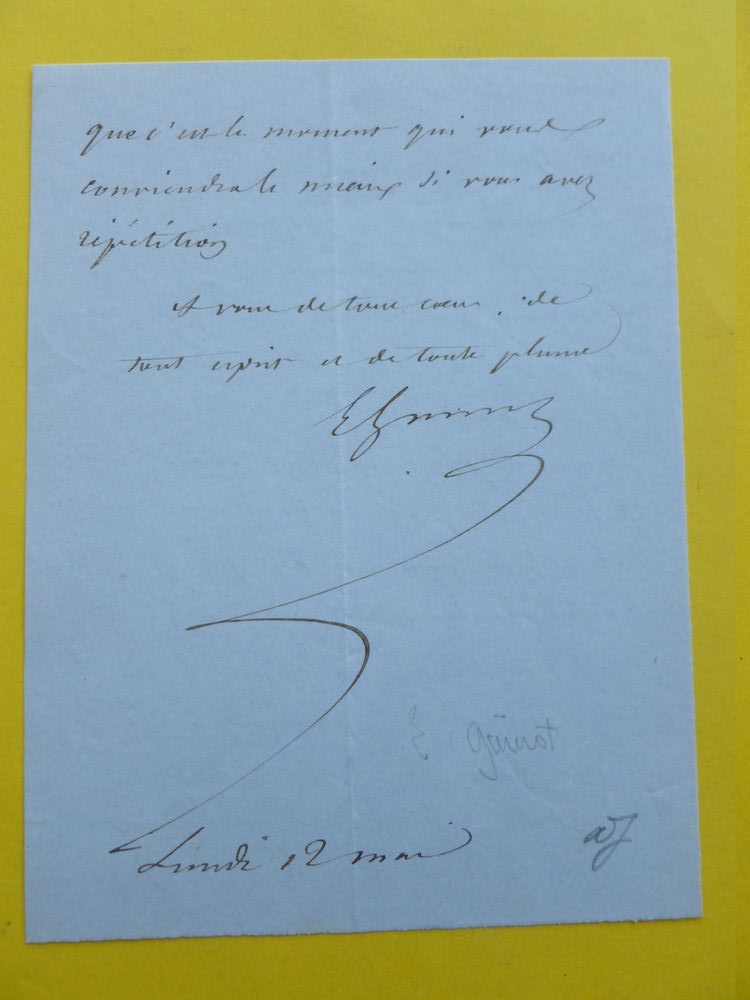 que c'est le moment qui vous
conviendra le mieux si vous avez
répétition
A vous de tout coeur, de
tout esprit et de toute plume
E Guinot
E. Guinot
Lundi 12 mai